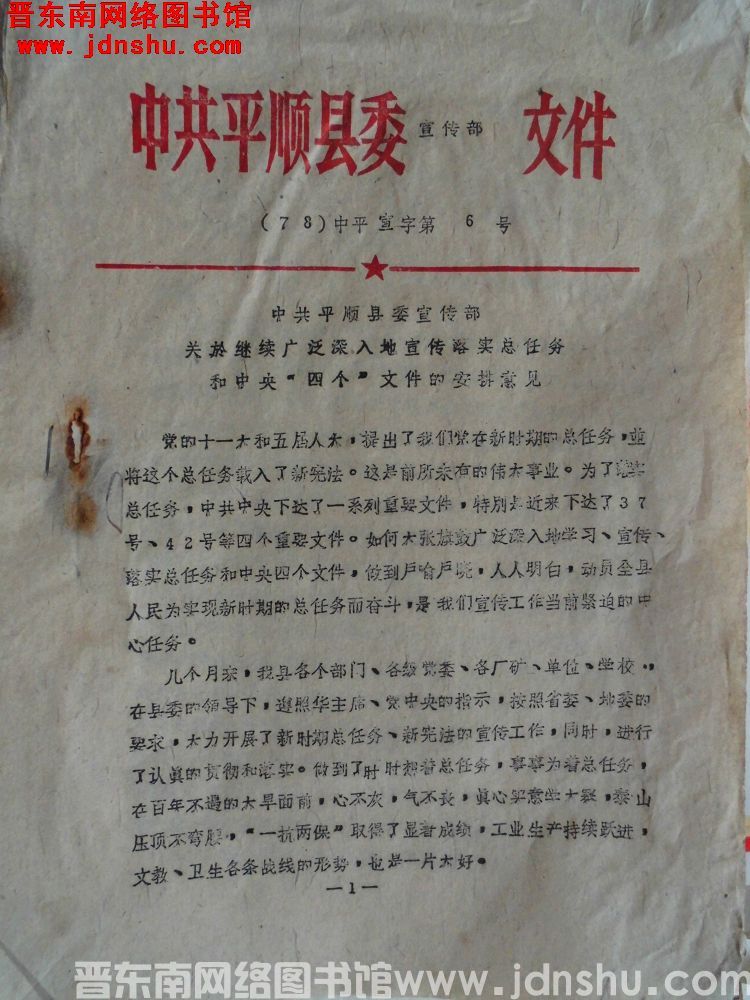 晋东南网络图书馆
www.jdnshu.com
中共平顺县委宣传部 文件
(78)中平宣字第 6 号
中共平顺县委宣传部
关於继续广泛深入地宣传落实总任务
和中央“四个”文件的安排意见
党的十一大和五届人大，提出了我们党在新时期的总任务，並
将这个总任务载入了新宪法。这是前所未有的伟大事业。为了落实
总任务，中共中央下达了一系列重要文件，特别是近来下达了37
号、42号等四个重要文件。如何大张旗鼓广泛深入地学习、宣传、
落实总任务和中央四个文件，做到户喻户晓，人人明白，动员全县
人民为实现新时期的总任务而奋斗，是我们宣传工作当前紧迫的中
心任务。
几个月来，我县各个部门、各级党委、各厂矿、单位、学校，
在县委的领导下，遵照华主席、党中央的指示，按照省委、地委的
要求，大力开展了新时期总任务、新宪法的宣传工作，同时，进行
了认真的贯彻和落实。做到了时时想着总任务，事事为着总任务，
在百年不遇的大旱面前，心不灰，气不丧，真心实意学大寨，泰山
压顶不弯腰，“一抗两保”取得了显著成绩，工业生产持续跃进，
文教、卫生各条战线的形势，也是一片大好。
—1—
晋东南网络图书馆www.jdnshu.com